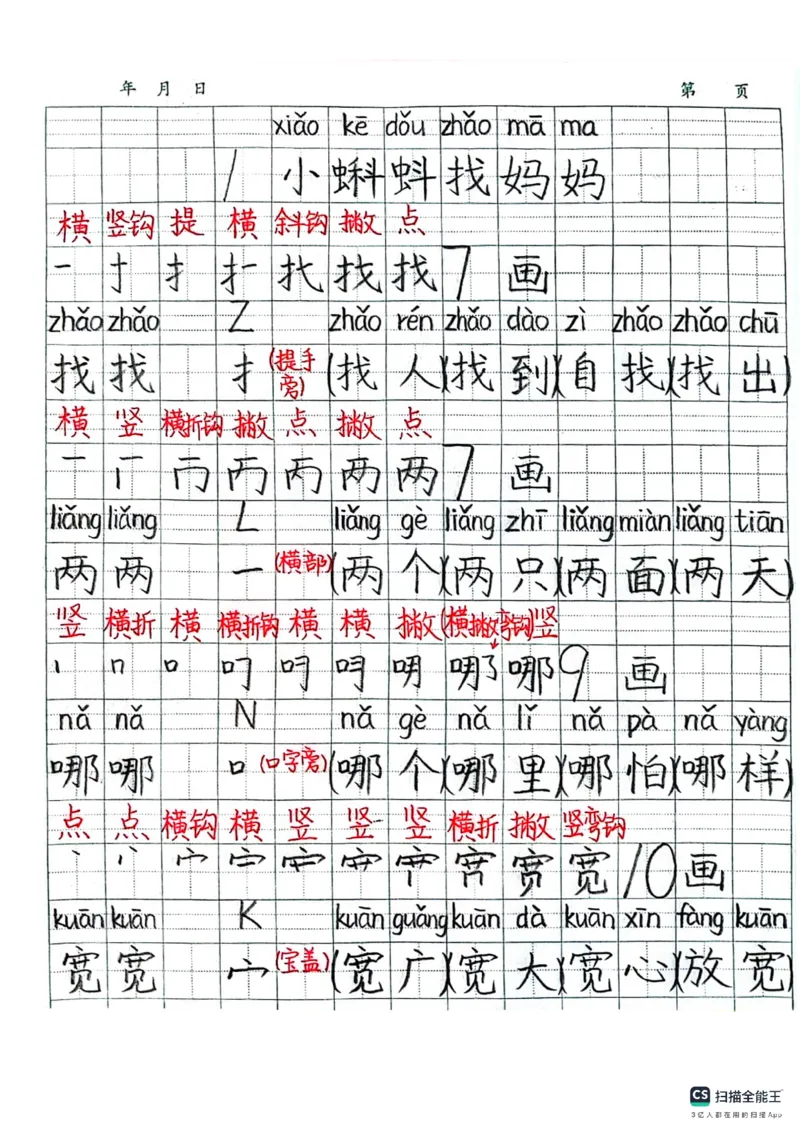 年 月 日 第 页
xiǎo kē dǒu zhǎo mā ma
1 小蝌蚪找妈妈
横 竖钩 提 横 斜钩 撇 点
一 扌 扌 找 找 7 画
zhǎo zhǎo Z zhǎo rén zhǎo dào zì zhǎo zhǎo chū
找 找 扌 (提手旁) (找人)(找到)(自找)(找出)
横 竖 横折钩 撇 点 撇 点
一 丅 两 两 7 画
liǎng liǎng L liǎng gè liǎng zhī liǎng miàn liǎng tiān
两 两 一 (横部) (两个)(两只)(两面)(两天)
竖 横折 横 横折钩 横 横 撇 (横撇弯钩) 竖
丨 口 叨 哪 哪 9 画
nǎ nǎ N nǎ gè nǎ lǐ nǎ pà nǎ yàng
哪 哪 口 (口字旁) (哪个)(哪里)(哪怕)(哪样)
点 点 横钩 横 竖 竖 竖 横折 撇 竖弯钩
丶 丷 宀 宽 宽 10 画
kuān kuān K kuān guǎng kuān dà kuān xīn fàng kuān
宽 宽 宀 (宝盖) (宽广)(宽大)(宽心)(放宽)
CS 扫描全能王
3亿人都在用的扫描App